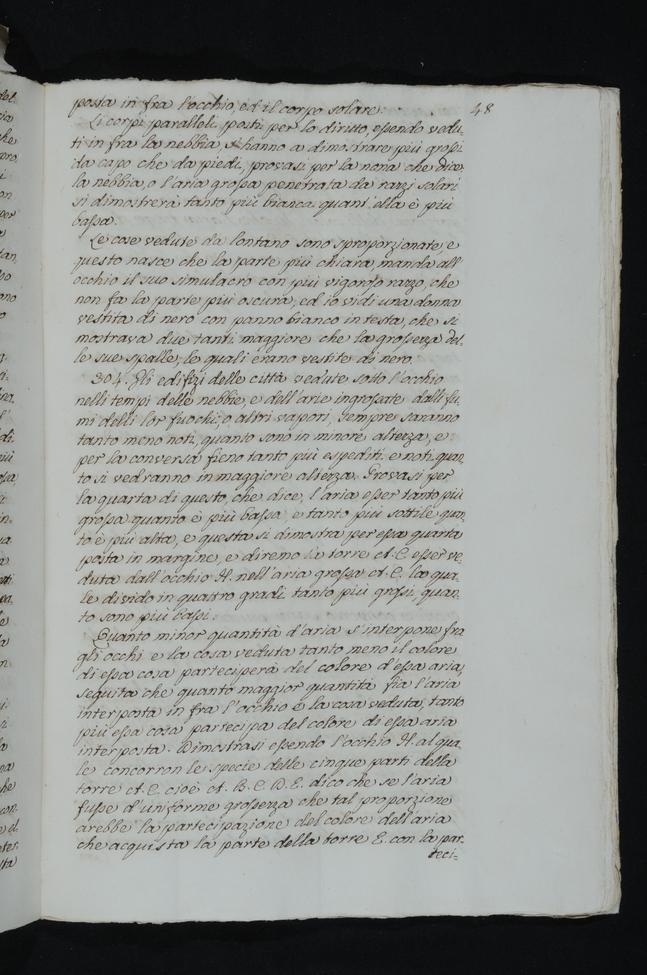 48
posta in fra l'occhio, ed il corpo solare.
Li corpi paralleli posti per lo diritto, essendo vedu-
ti in fra la nebbia, s'hanno a dimostrare più grossi
da capo che da piedi, provasi per la nona che dice,
la nebbia, o l'aria grossa penetrata da razzi solari
si dimostrerà tanto più bianca quant'ella è più
bassa.
Le cose vedute da lontano sono sproporzionate, e
questo nasce che la parte più chiara, manda all'
occhio il suo simulacro con più vigoroso razzo, che
non fa la parte più oscura, ed io vidi una donna
vestita di nero con panno bianco in testa, che si
mostrava due tanti maggiore che la grossezza del-
le sue spalle, le quali erano vestite di nero.
304. Gli edifizi delle città vedute sotto l'occhio
nelli tempi delle nebbie, e dell'arie ingrossate dalli fu-
mi delli lor fuochi, o altri vapori, sempre saranno
tanto meno noti, quanto sono in minore altezza, e
per la conversa fieno tanto più espediti e noti quan-
to si vedranno in maggiore altezza. Provasi per
la quarta di questo, che dice, l'aria esser tanto più
grossa quanto è più bassa, e tanto più sottile quan-
to è più alta, e questa si dimostra per essa quarta
posta in margine, e diremo la torre A. E. esser ve-
duta dall'occhio H. nell'aria grossa A. E. la qua-
le divido in quattro gradi tanto più grossi, quan-
to sono più bassi.
Quanto minor quantità d'aria s'interpone fra
gli occhi e la cosa veduta tanto meno il colore
di essa cosa parteciperà del colore d'essa aria,
seguita che quanto maggior quantità fia l'aria
interposta in fra l'occhio e la cosa veduta, tanto
più essa cosa partecipa del colore di essa aria
interposta. Dimostrasi essendo l'occhio H. al qua-
le concorron le specie delle cinque parti della
torre A. E. cioè A. B. C. D. E. dico che se l'aria
fusse d'uniforme grossezza che tal proporzione
arebbe la partecipazione del colore dell'aria
che acquista la parte della torre E. con la par-
teci-